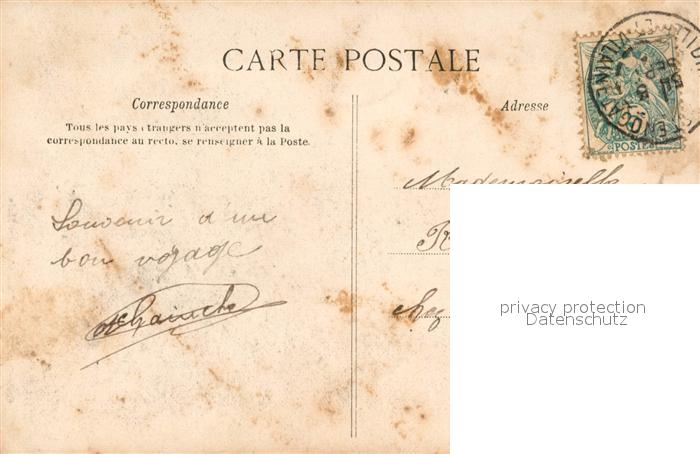 CARTE POSTALE
Correspondance
Tous les pays étrangers n'acceptent pas la
correspondance au recto, se renseigner à la Poste.
Souvenir d'un
bon voyage
Adresse
POSTES
Mademoiselle
R
chez
privacy protection
Datenschutz